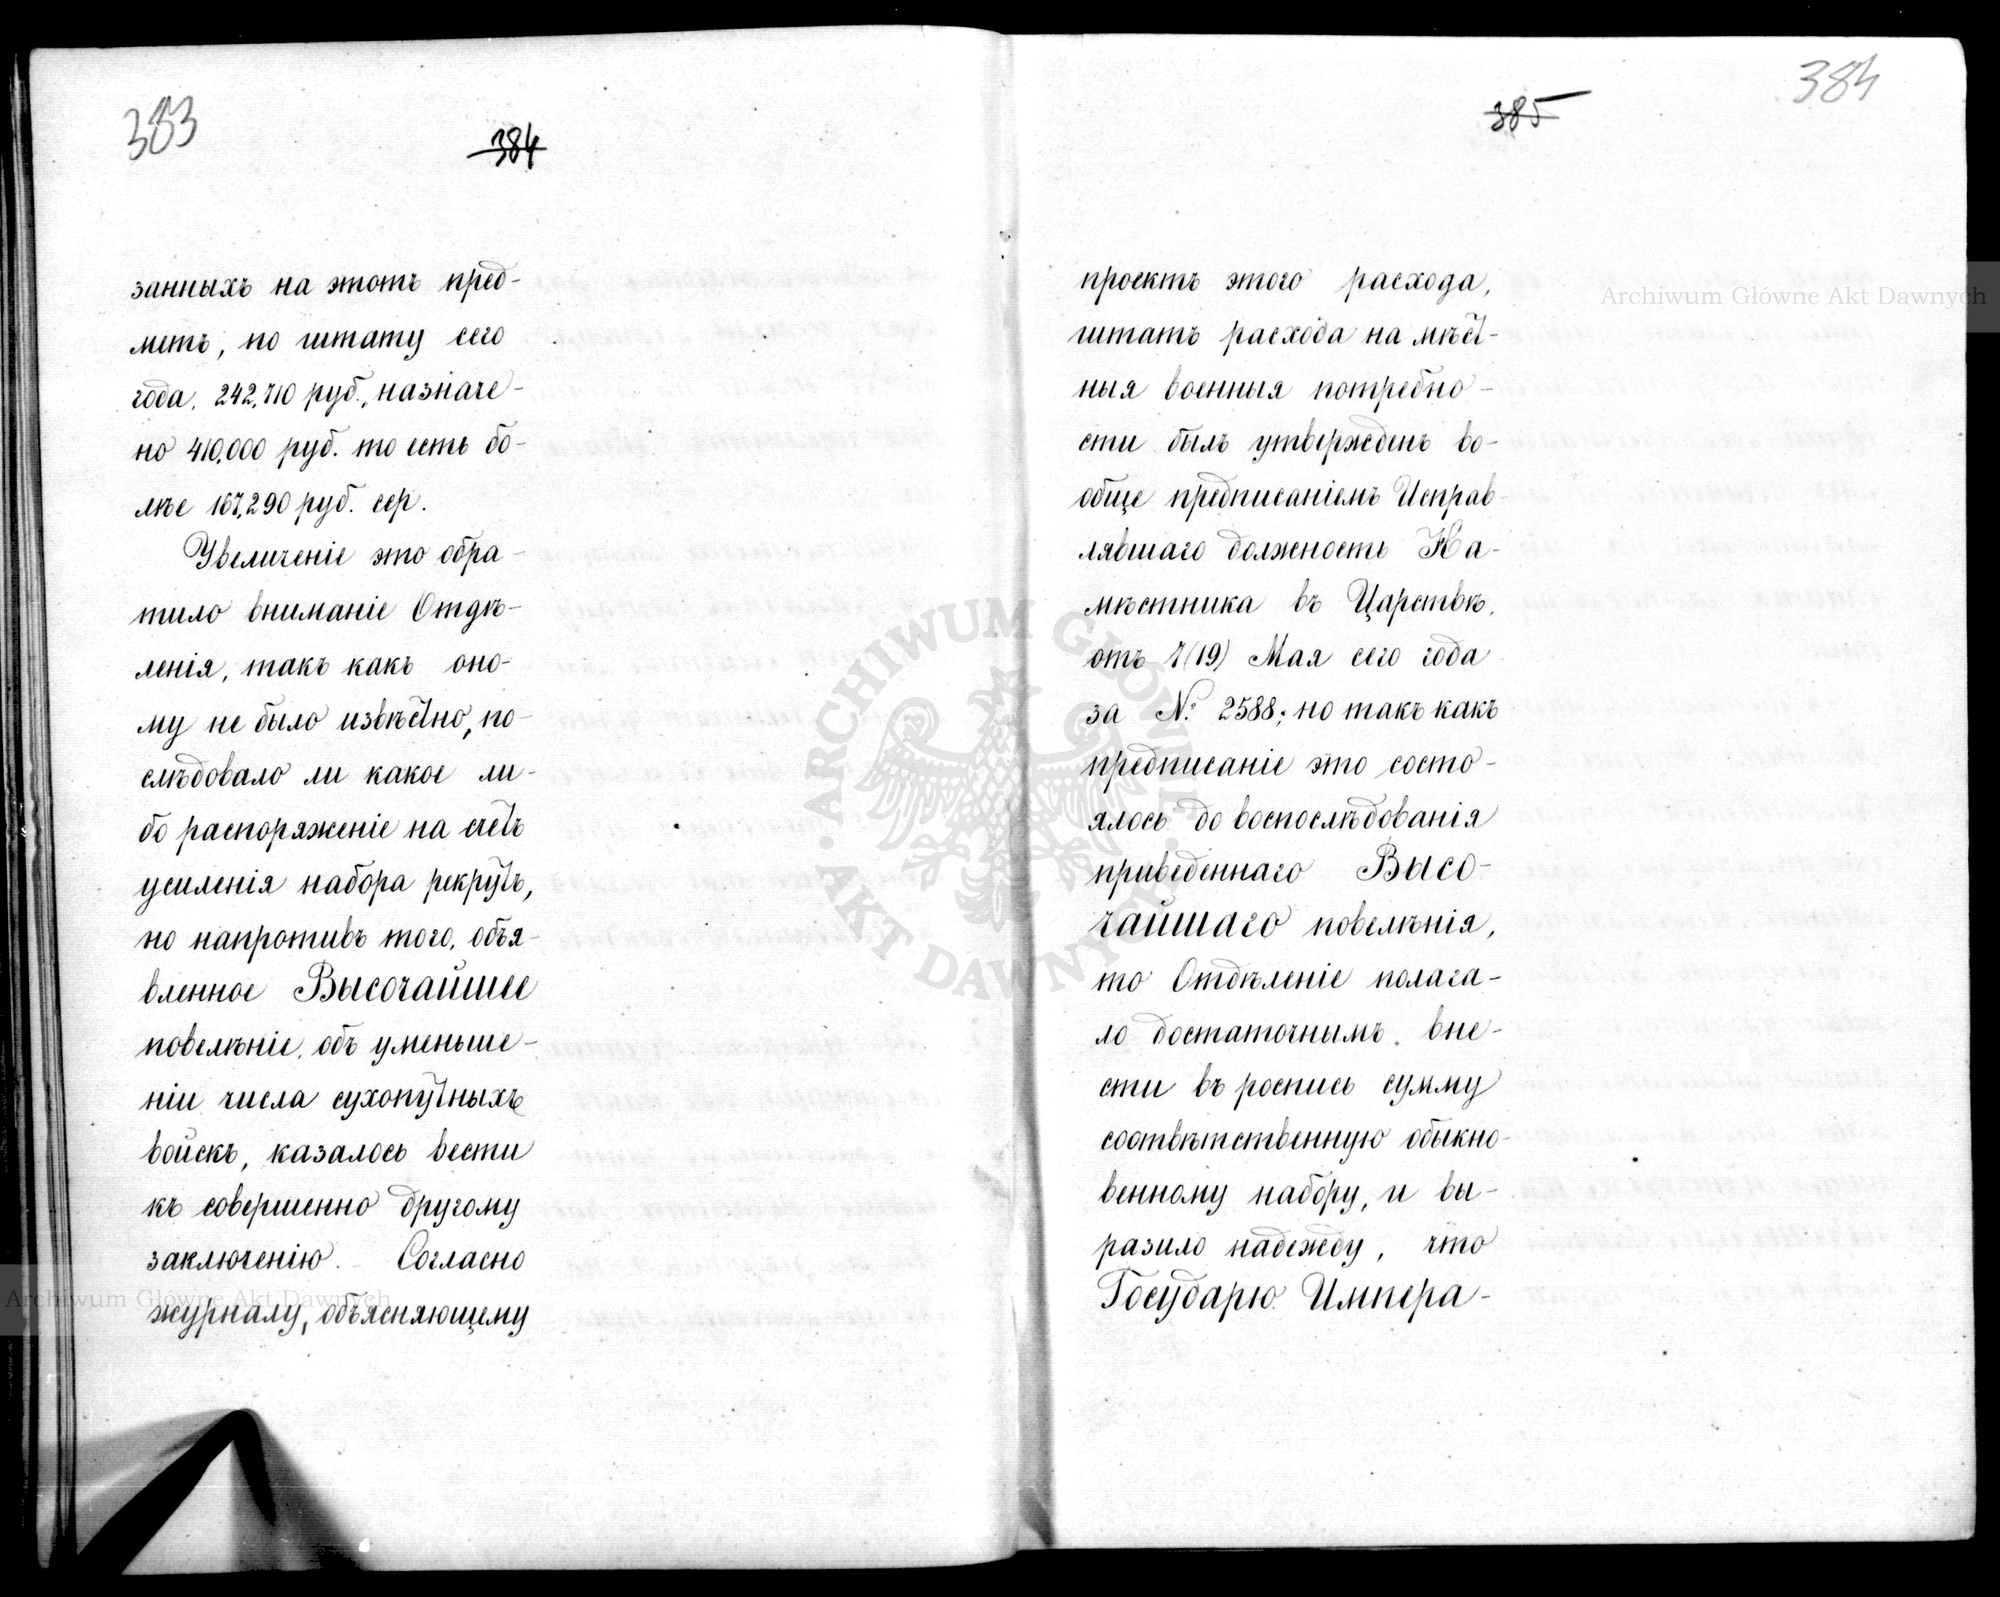 383
384
занныхъ на этотъ пред-
метъ, по штату сего
года, 242,710 руб., назначе-
но 410,000 руб. то есть бо-
лѣе 167,290 руб. сер.
Увеличеніе это обра-
тило вниманіе Отдѣ-
ленія, такъ какъ оно-
му не было извѣстно, по-
слѣдовало ли какое ли-
бо распоряженіе на счетъ
усиленія набора рекрутъ,
но напротивъ того, объя-
вленное Высочайшее
повелѣніе, объ уменьше-
ніи числа сухопутныхъ
войскъ, казалось вести
къ совершенно другому
заключенію. - Согласно
журналу, объясняющему
385
384
проектъ этого расхода,
штатъ расхода на мѣст-
ныя военныя потребно-
сти былъ утвержденъ во-
обще предписаніемъ Исправ-
лявшаго должность На-
мѣстника въ Царствѣ,
отъ 7(19) Мая сего года
за №. 2588; но такъ какъ
предписаніе это состо-
ялось до воспослѣдованія
приведеннаго Высо-
чайшаго повелѣнія,
то Отдѣленіе полага-
ло достаточнымъ, вне-
сти въ роспись сумму
соотвѣтственную обыкно-
венному набору, и вы-
разило надежду, что
Государю Импера-
Archiwum Główne Akt Dawnych
Archiwum Główne Akt Dawnych
ARCHIWUM GŁÓWNE AKT DAWNYCH